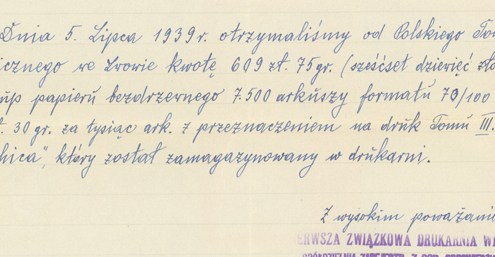 Dnia 5. Lipca 1939 r. otrzymaliśmy od Polskiego To
icznego we Lwowie kwotę 609 zł. 75 gr. (sześćset dziewięć zło
up papieru bezdrzewnego 7.500 arkuszy formatu 70/100
ł. 30 gr. za tysiąc ark. z przeznaczeniem na druk Tomu III.
hica", który został zamagazynowany w drukarni.
Z wysokim poważani
ERWSZA ZWIĄZKOWA DRUKARNIA W